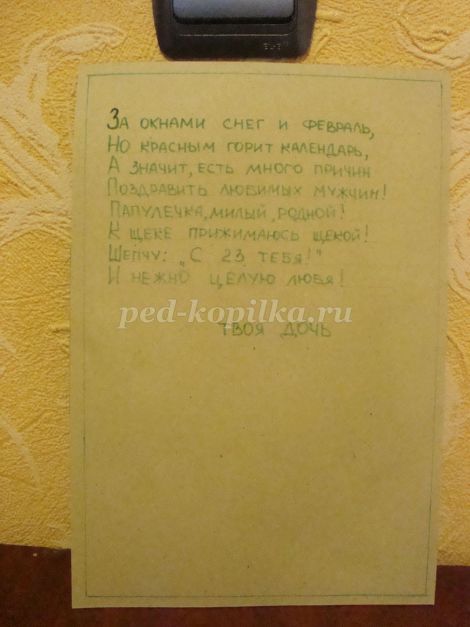 За окнами снег и февраль,
Но красным горит календарь,
А значит, есть много причин
Поздравить любимых мужчин!
Папулечка, милый, родной!
К щеке прижимаюсь щекой!
Шепчу: „С 23 тебя!"
И нежно целую любя!
ped-kopilka.ru
Твоя дочь